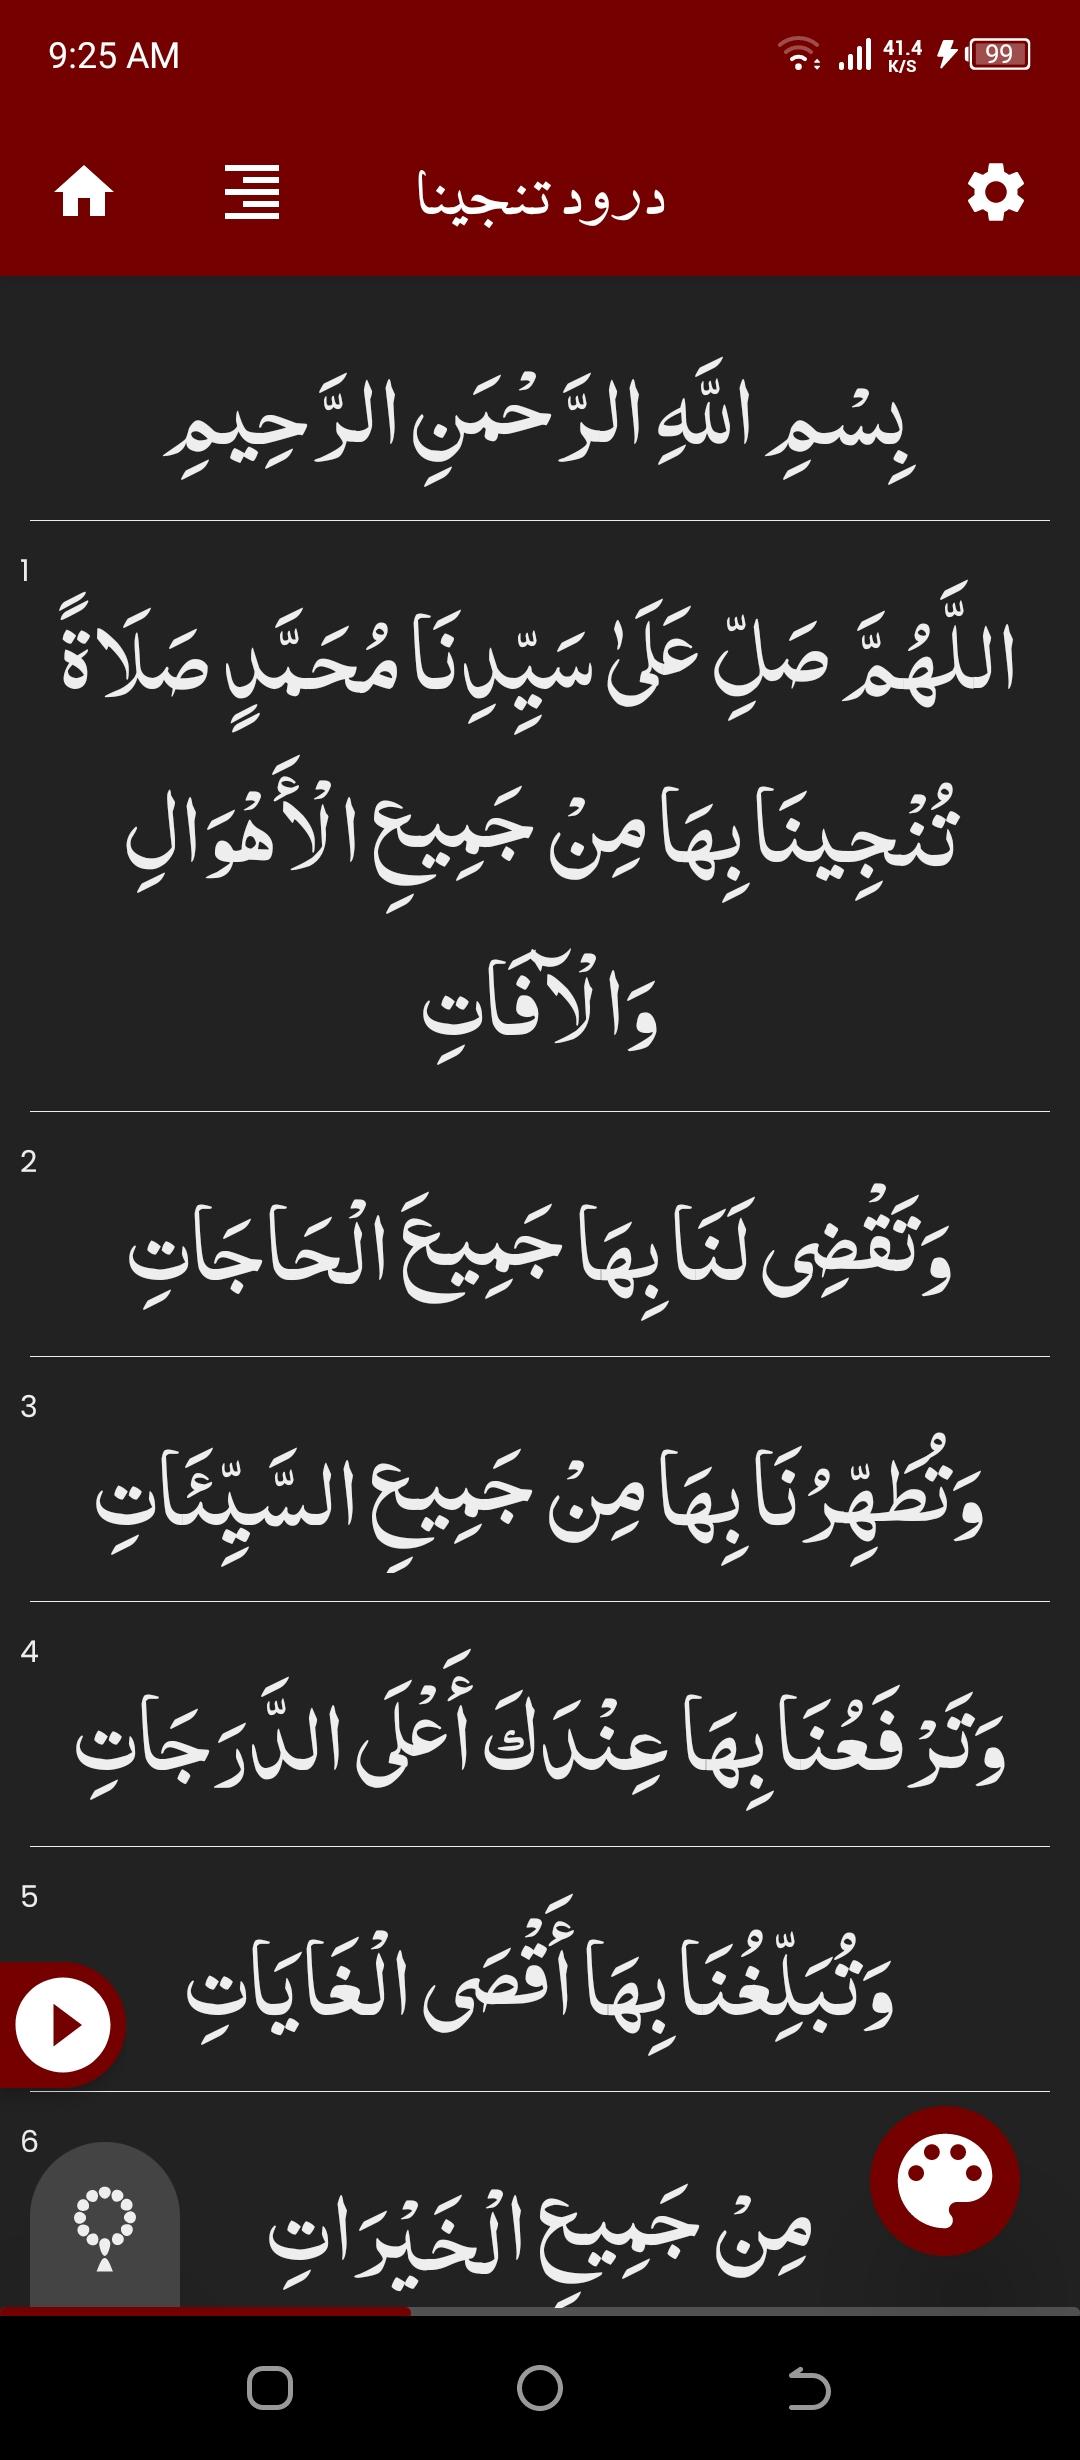 9:25 AM
41.4
K/S
99
درود تنجینا
بِسْمِ اللَّهِ الرَّحْمَنِ الرَّحِيمِ
1
اللَّهُمَّ صَلِّ عَلَىٰ سَيِّدِنَا مُحَمَّدٍ صَلَاةً
تُنْجِينَا بِهَا مِنْ جَمِيعِ الْأَهْوَالِ
وَالْآفَاتِ
2
وَتَقْضِى لَنَا بِهَا جَمِيعَ الْحَاجَاتِ
3
وَتُطَهِّرُنَا بِهَا مِنْ جَمِيعِ السَّيِّئَاتِ
4
وَتَرْفَعُنَا بِهَا عِنْدَكَ أَعْلَى الدَّرَجَاتِ
5
وَتُبَلِّغُنَا بِهَا أَقْصَى الْغَايَاتِ
6
مِنْ جَمِيعِ الْخَيْرَاتِ